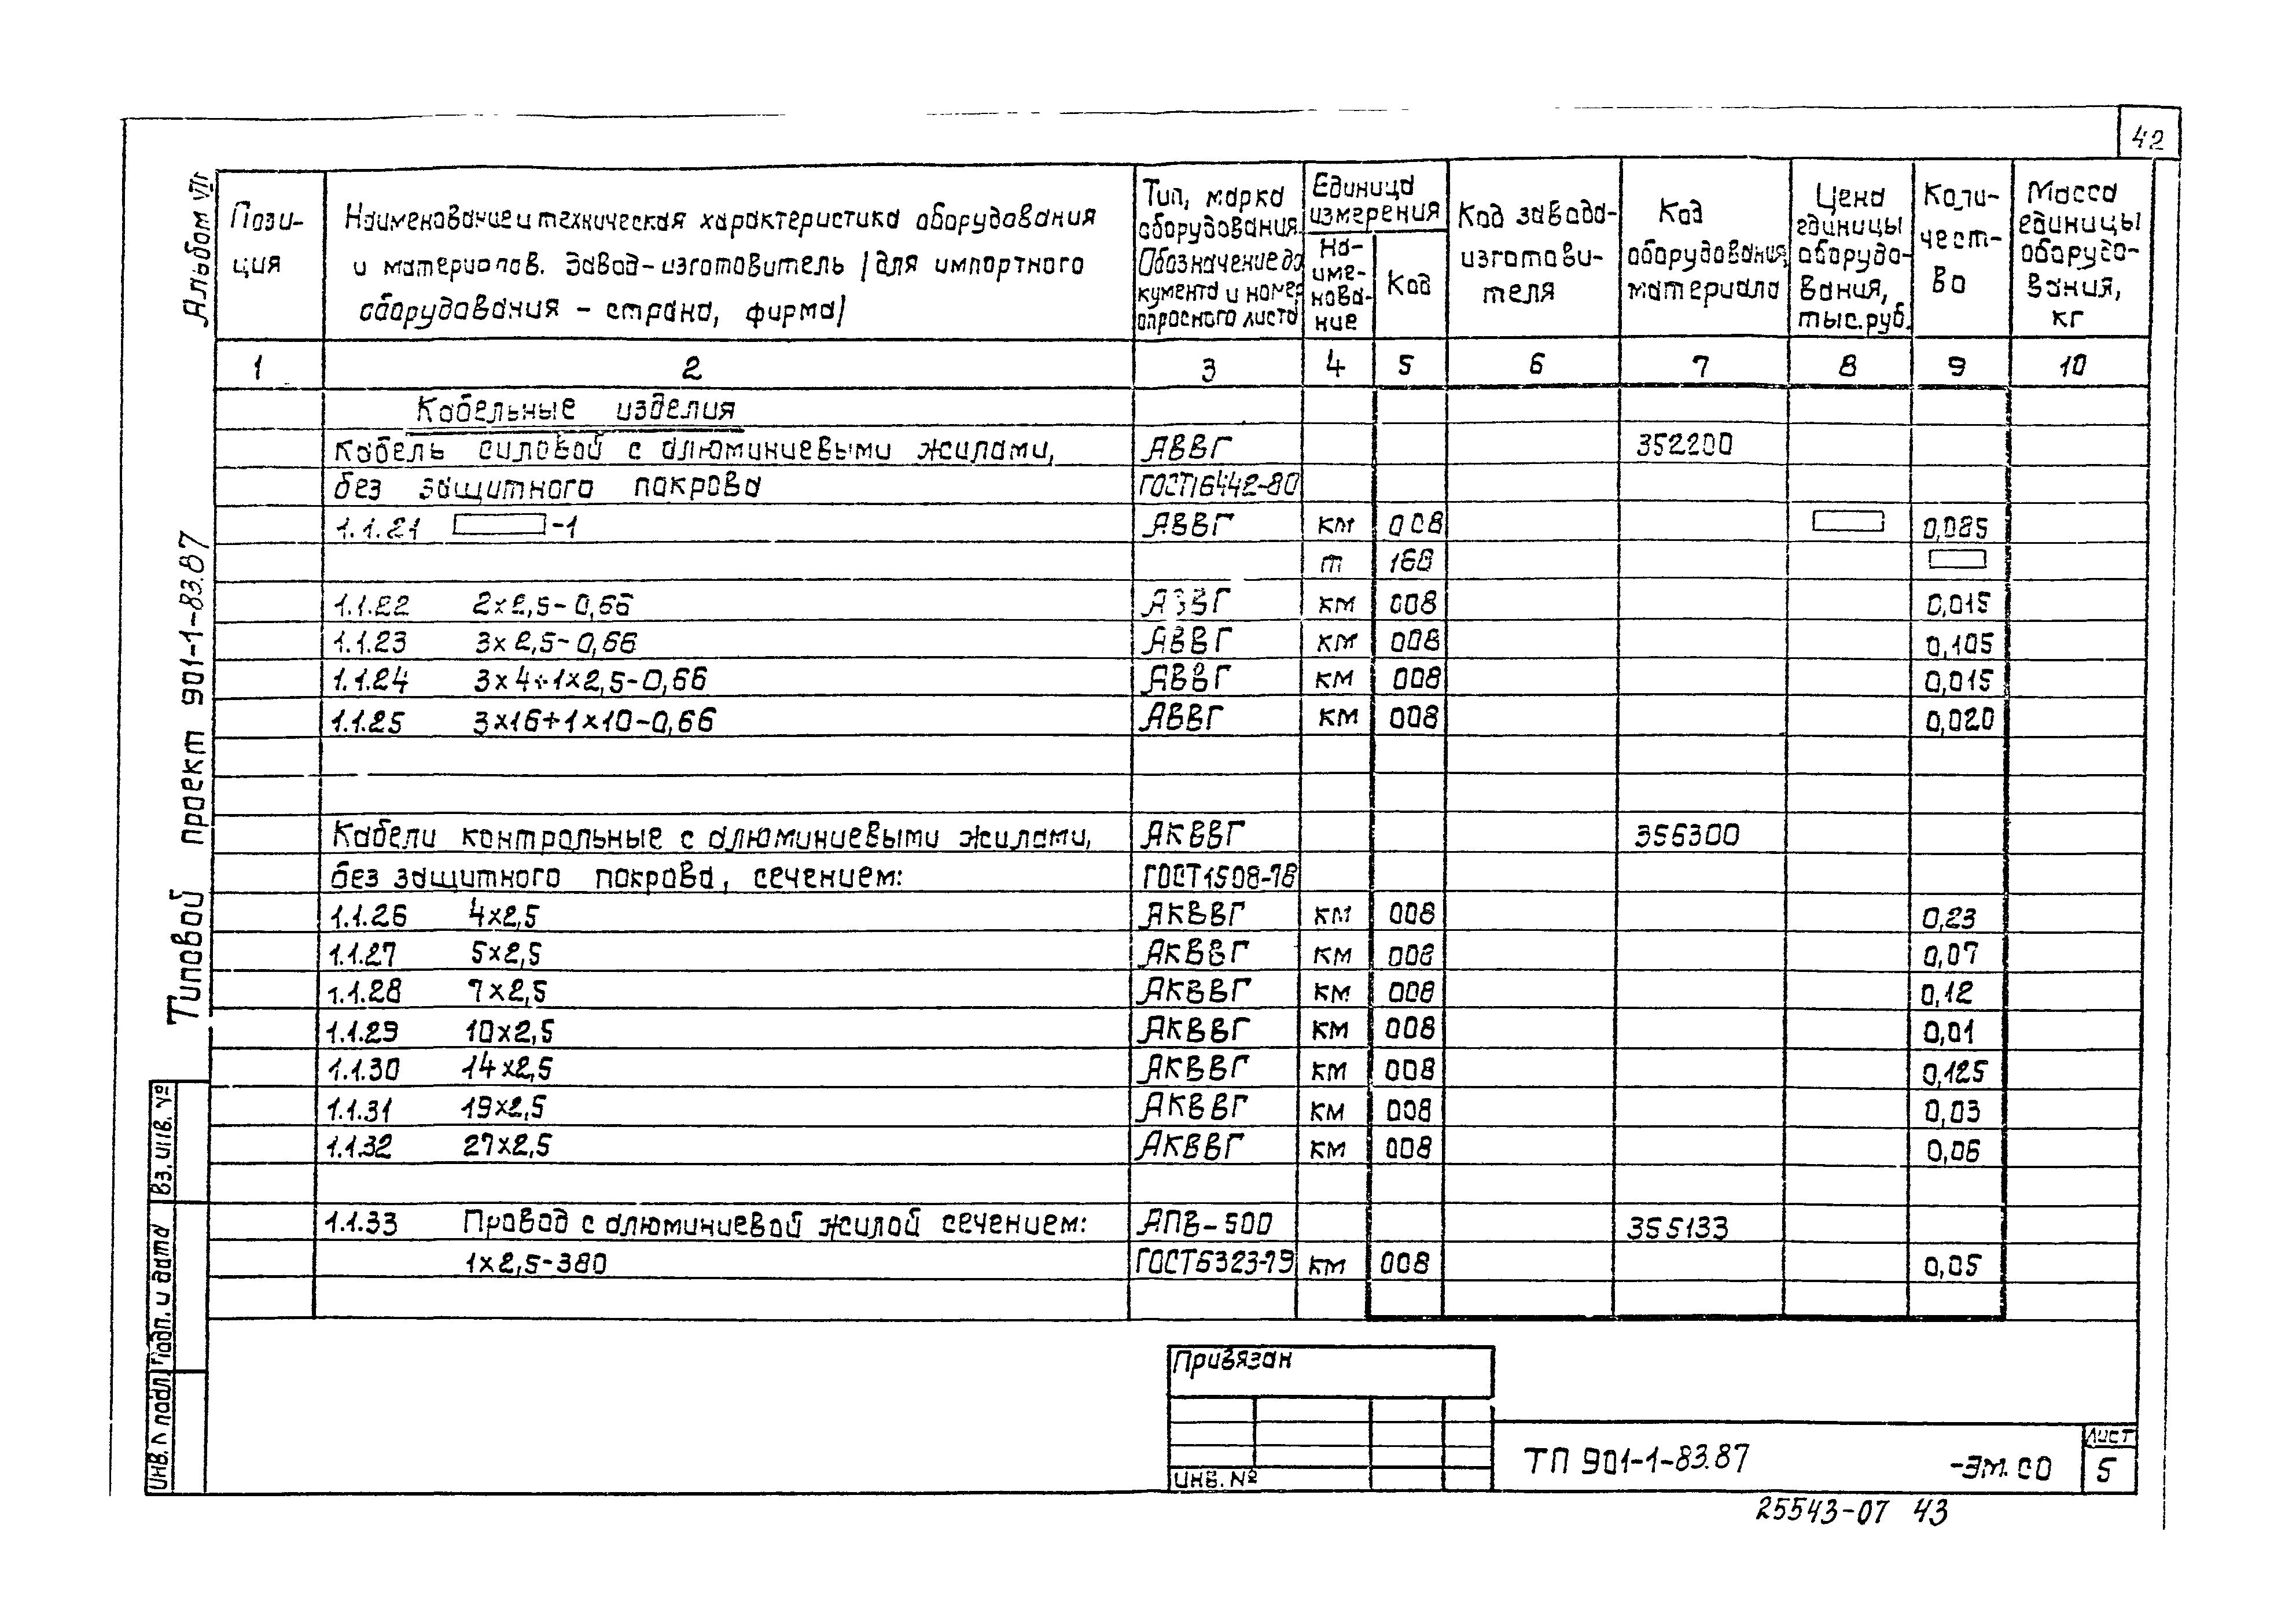 42
Альбом VII
Типовой проект 901-1-83.87
Пози-
ция
Наименование и техническая характеристика оборудования
и материалов. Завод-изготовитель /для импортного
оборудования - страна, фирма/
Тип, марка
оборудования.
Обозначение до
кумента и номер
опросного листа
Единица
измерения
На-
име-
нова-
ние
Код
Код завода-
изготови-
теля
Код
оборудования,
материала
Цена
единицы
оборудо-
вания,
тыс.руб.
Коли-
чест-
во
Масса
единицы
оборудо-
вания,
кг
1 2 3 4 5 6 7 8 9 10
Кабельные изделия
Кабель силовой с алюминиевыми жилами, АВВГ 352200
без защитного покрова ГОСТ16442-80
1.1.21 -1 АВВГ км 008 0,085
т 168
1.1.22 2x2,5-0,66 АВВГ км 008 0,015
1.1.23 3x2,5-0,66 АВВГ км 008 0,105
1.1.24 3x4+1x2,5-0,66 АВВГ км 008 0,015
1.1.25 3x16+1x10-0,66 АВВГ км 008 0,020
Кабели контрольные с алюминиевыми жилами, АКВВГ 356300
без защитного покрова, сечением: ГОСТ1508-78
1.1.26 4x2,5 АКВВГ км 008 0,23
1.1.27 5x2,5 АКВВГ км 008 0,07
1.1.28 7x2,5 АКВВГ км 008 0,12
1.1.29 10x2,5 АКВВГ км 008 0,01
1.1.30 14x2,5 АКВВГ км 008 0,125
1.1.31 19x2,5 АКВВГ км 008 0,03
1.1.32 27x2,5 АКВВГ км 008 0,06
1.1.33 Провод с алюминиевой жилой сечением: АПВ-500 355133
1x2,5-380 ГОСТ6323-79 км 008 0,05
Вз. инв. №
Подп. и дата
Инв. № подл.
Привязан
Инв. №
ТП 901-1-83.87 -ЭМ.СО
Лист
5
25543-07 43